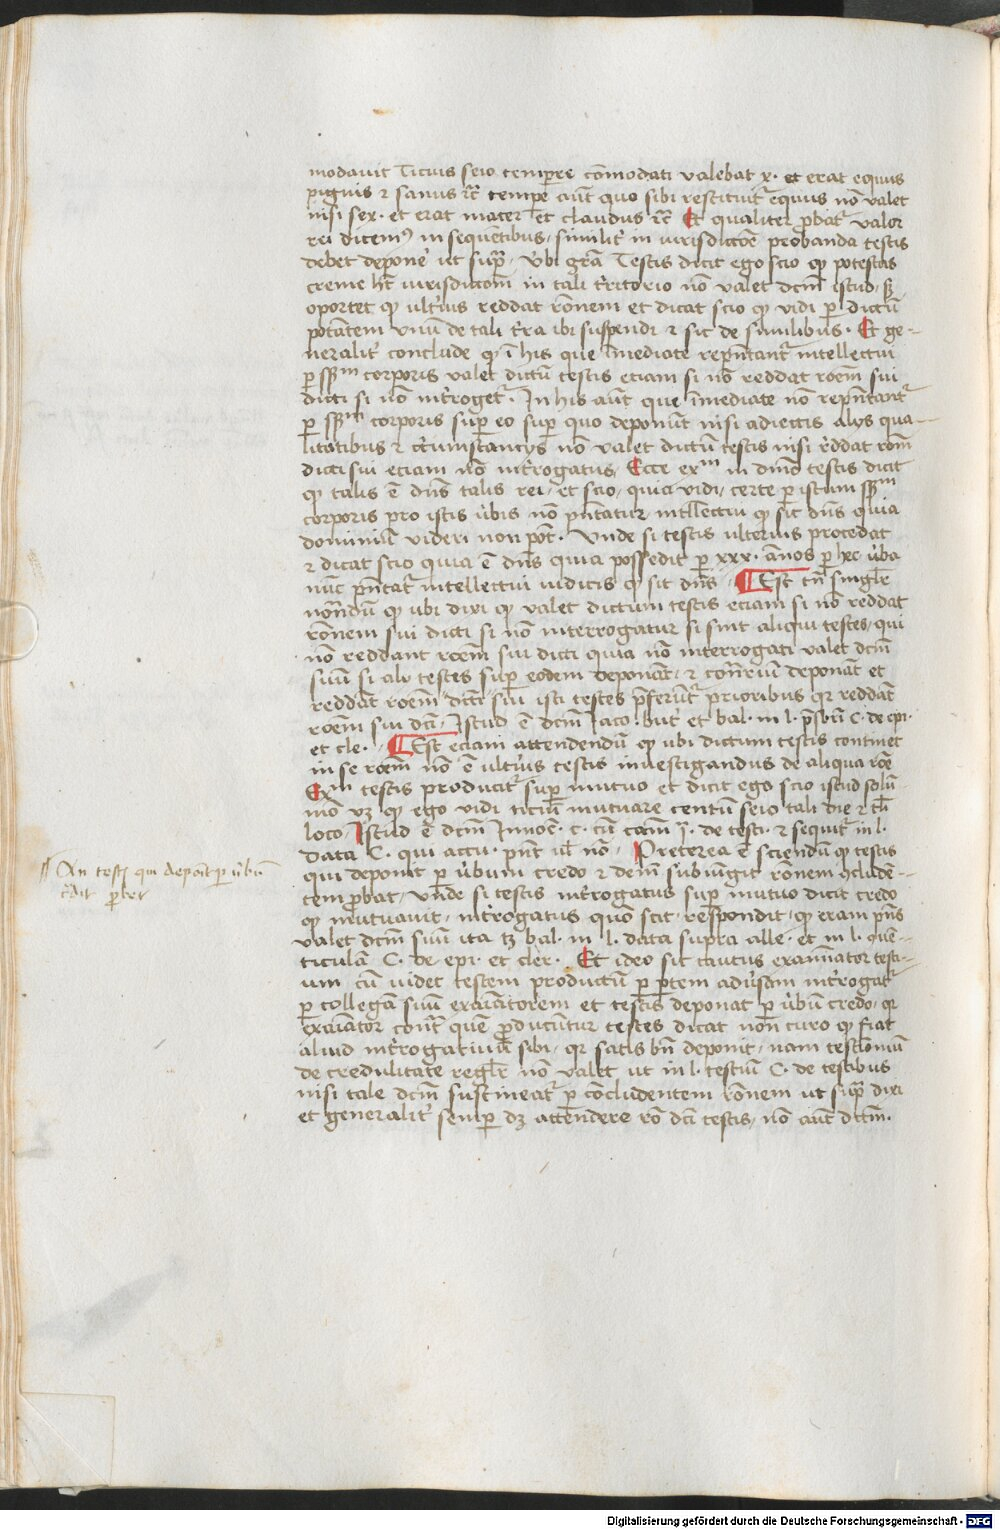 modavit Ticius seio tempere cōmodati valebat x. et erat equus
pīguis ⁊ sanus ⁊c̄ tempe aūt quo sibi restituit᷑ equus nō valet
nisi sex. et erat macer et claudus ⁊c̄ Et qualiter ꝓbat᷑ valor
rei dicemꝰ in sequētibus, similit᷑ in iurisdictōe probanda testis
debet depone᷑ ut sup̄, vbi grā Testis dicit ego scio qꝫ potestas
creme h̄t iurisdictōm in tali t᷑ritorio nō valet dc̄m istud, sꝫ
oportet qꝫ ult᷑ius reddat rōnem et dicat scio qꝫ vidi ꝑ dictū
potātem vnū de tali t᷑ra ibi suspendi ⁊ sic de similibus. Et ge-
neralit᷑ conclude qꝫ ī his que īmediate repn̄tant᷑ intellectui
ꝑ sp̄m corporis valet dictū testis etiam si nō reddat rōem sui
dicti si nō int᷑roget᷑. In his aūt que īmediate nō repn̄tant᷑
ꝑ sp̄m corporis suꝑ eo suꝑ quo deponūt nisi adiectis alijs qua-
litatibus ⁊ circumstancijs nō valet dictū testis nisi reddat rōm
dicti sui etiam nō int᷑rogatus, Ecce exm in dn̄io testis dicit
qꝫ talis ē dn̄s talis rei, et scio, quia vidi, certe ꝑ istum sp̄m
corporis pro istis v᷑bis nō pn̄tatur intellectui qꝫ sit dn̄s quia
dominiū videri non pōt. vnde si testis ulterius procedat
⁊ dicat scio quia ē dn̄s quia possedit ꝑ xxx. ānos ꝑ hec v᷑ba
nūc pn̄tat᷑ intellectui iudicis qꝫ sit dn̄s. ¶ Est tn̄ singl̄r
notādū qꝫ ubi dixi qꝫ valet dictum testis etiam si nō reddat
rōnem sui dicti si nō interrogatur si sint aliqui testes, qui
nō reddant rōem sui dicti quia nō interrogati valet dc̄m
suū si alij testes suꝑ eodem deponāt, ⁊ cont᷑riū deponāt et
reddāt rōem dicti sui isti testes p̄ferunt᷑ prioribus qr reddāt
rōem sui dc̄i. Istud ē dc̄m Iaco. but᷑ et bal. in l. p̄sbit᷑i C. de epi.
et cle. ¶ Est etiam attendendū qꝫ ubi dictum testis continet
in se rōem nō ē ult᷑ius testis inuestigandus de aliqua rōe
Exm testis producit᷑ suꝑ mutuo et dicit ego scio istud solū-
mō vꝫ qꝫ ego vidi ticiū mutuare centū seio tali die ⁊ tali
loco, Istud ē dc̄m Innoc. c. cū cām q̄. de testi. ⁊ sequit᷑ in l.
data C. qui accu. pn̄t ul̄ nō. Preterea ē sciendū qꝫ testis
// An testꝭ qui depōat ꝑ v᷑bū
credit ꝓbet
qui deponit ꝑ v᷑bum credo ⁊ dem̄ subiūgit rōnem ꝯcludē-
tem ꝓbat, vnde si testis int᷑rogatus suꝑ mutuo dicit credo
qꝫ mutuauit, int᷑rogatus quō scit, respondit qꝫ eram pn̄s
valet dc̄m suū ita tꝫ bal. in l. data supra alle. et in l. quē-
ticulā C. de epi. et cler. Et ideo sit cautus exam̄nator testi-
um cū videt testem productū ꝑ ꝑtem adv᷑sam int᷑rogat᷑
ꝑ collegā suū exaīatorem et testis deponat ꝑ v᷑bū credo, qr
exaīator cont᷑ quē ꝓducūtur testes dicat non curo qꝫ fiat
aliud int᷑rogatiuū sibi, qr satis bn̄ deponit, nam testīoniū
de credulitate regl̄r nō valet ut in l. testiū C. de testibus
nisi tale dc̄m sustineat᷑ ꝑ cōcludentem rōnem ut sup̄ dixi
et generalit᷑ semꝑ dꝫ attendere rō dc̄i testis, nō aūt dictm̄.
Digitalisierung gefördert durch die Deutsche Forschungsgemeinschaft - DFG